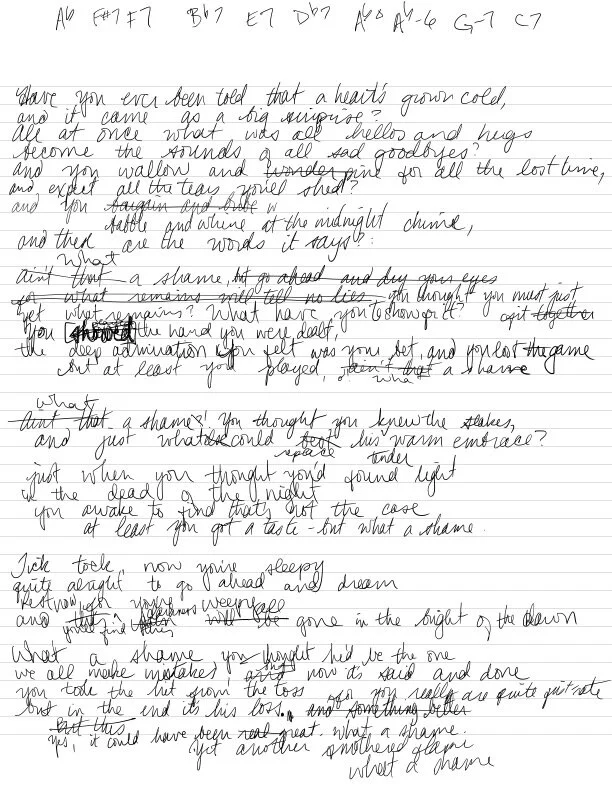 A6 F#7 F7 Bb7 E7 Db7 Ab∆ Ab-6 G-7 C7
Have you ever been told that a heart's grown cold,
and it came as a big surprise?
All at once what was all hellos and hugs
become the sounds of all sad goodbyes?
and you wallow and wonder pine for all the lost time,
and expect all the tears you'll shed?
and you bargain and bribe w
babble and whine at the midnight chime,
and then are the words it says?:
What
Ain't that a shame, but go ahead and dry your eyes
for what remains will tell no lies, you thought you must just
yet what remains? What have you to show for it? cogit together
You should the hand you were dealt,
the deep admiration you felt was your bet, and you lost the game
but at least you played, ain't that a shame
wha
What
Ain't that a shame? You thought you knew the stakes,
and just what else could beat his warm embrace?
space tender
just when you thought you'd found light
in the dead of the night
you awake to find that's not the case
at least you got a taste - but what a shame.
Tick tock, now you're sleepy
quite alright to go ahead and dream
Rest now for you're weepy
and will be gone in the light of the dawn
you'll find
What a shame you thought he'd be the one
we all make mistakes, and now it's said and done
but
you took the hit from the toss for you really are quite first rate
but in the end it's his loss. and something better
But this
Yes, it could have been real great. what a shame.
Yet another smothered flame
what a shame